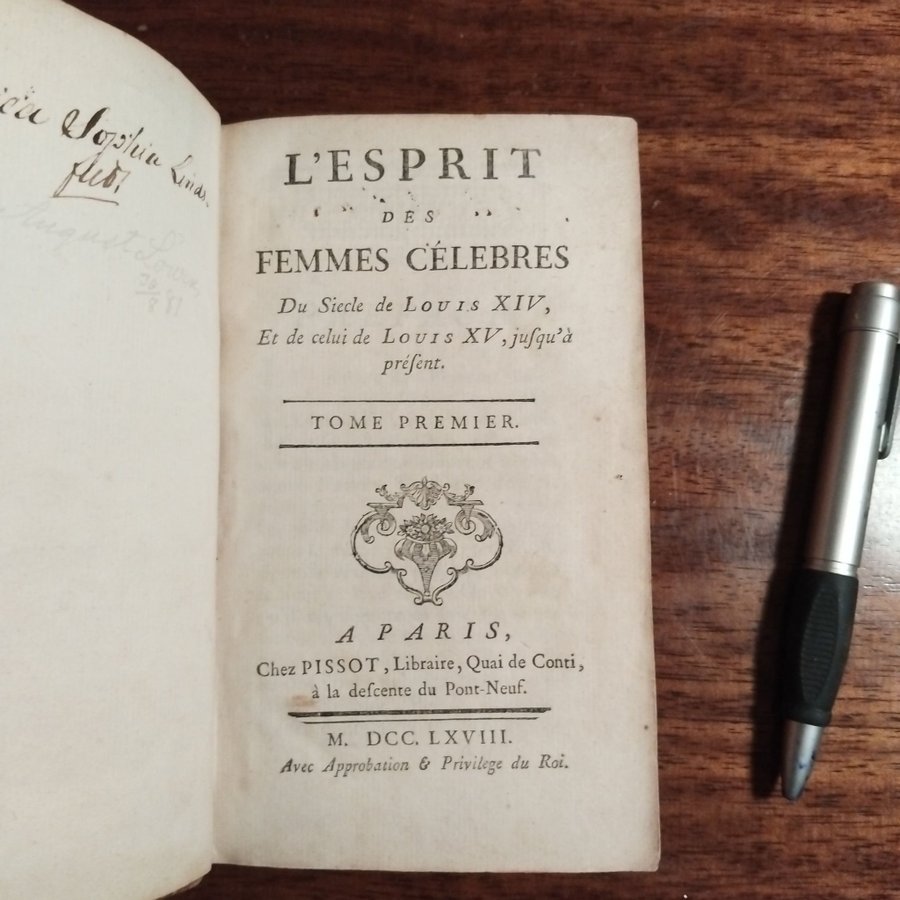 Sophia
L'ESPRIT
DES
FEMMES CÉLEBRES
Du Siecle de LOUIS XIV,
Et de celui de LOUIS XV, juſqu'à
préſent.
TOME PREMIER.
A PARIS,
Chez PISSOT, Libraire, Quai de Conti,
à la deſcente du Pont-Neuf.
M. DCC. LXVIII.
Avec Approbation & Privilege du Roi.